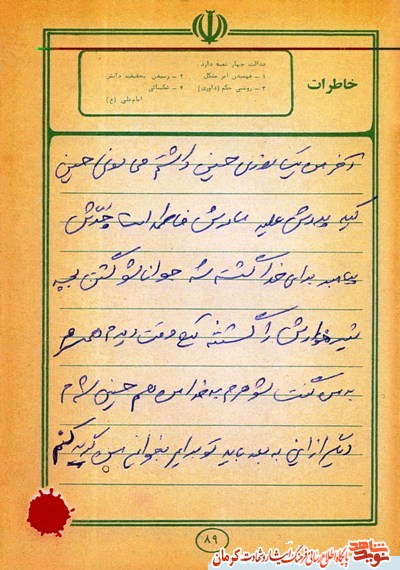 خاطرات
عدالت چهار شعبه دارد.
۱ – فهمیدن امر مشکل
۲ – رسیدن بحقیقت دانش
۳ – روشنی حکم (داوری)
۴ – شکیبائی
امام علی (ع)
آخر من یک روزی حسین داشتم می دونی حسین
کیه پدرش علیه مادرش فاطمه است جدّش
پیامبر برای خدا کشته شد جواناشو کشتن بچه
شیرخوارش را کشتند یک وقت دیدم همسرم
به من گفت شوهرم به خدا من هم حسین شدم
دیگر از این به بعد باید تو برایم بخوانی من گریه کنم
۸۹
نوید شاهد
پایگاه اطلاع رسانی فرهنگ ایثار و شهادت کرمان